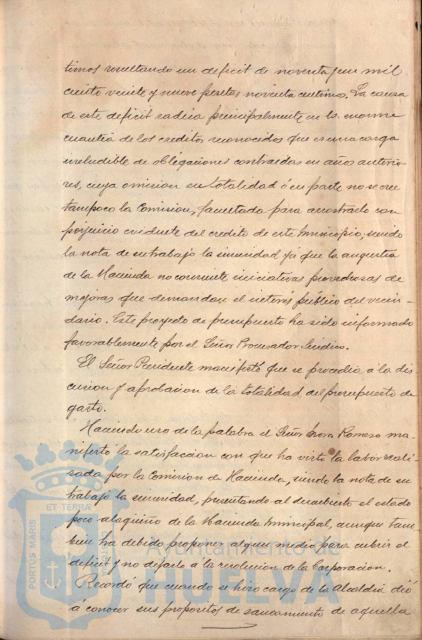 timos resultando un deficit de noventa y un mil
ciento veinte y nueve pesetas noventa centimos. La causa
de este deficit radica principalmente en la enorme
cuantia de los creditos reconocidos que es una carga
ineludible de obligaciones contraidas en años anterio-
res, cuya omision en totalidad ó en parte no se cree
tampoco la Comision, facultada para acordarlo con
perjuicio evidente del credito de este Municipio, siendo
la nota de su trabajo la sinceridad ya que la angustia
de la Hacienda no consiente iniciativas provechosas de
mejoras que demandan el interés público del vecin-
dario. Este proyecto de presupuesto ha sido informado
favorablemente por el Señor Procurador Sindico.
El Señor Presidente manifestó que se procedia á la dis
cusion y aprobacion de la totalidad del presupuesto de
gasto.
Haciendo uso de la palabra el Señor Romero ma-
nifesto la satisfaccion con que ha visto la labor reali-
zada por la Comision de Hacienda, siendo la nota de su
trabajo la sinceridad, presentando al descubierto el estado
poco alagüeño de la Hacienda municipal, aunque tam
bien ha debido proponer algun medio para cubrir el
deficit y no dejarlo á la resolucion de la Corporacion.
Recordó que cuando se hizo cargo de la Alcaldia dió
á conocer sus propositos de saneamiento de aquella
PORTUS MARIS
ET TERRA
Ayuntamiento de
HUELVA